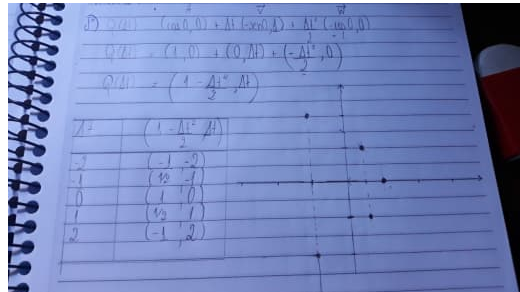 Q(Δt) = (cos 0, 0) + Δt (-sen 0, 1) + Δt²/2 (-cos 0, 0)
Q(Δt) = (1, 0) + (0, Δt) + (-Δt²/2, 0)
Q(Δt) = (1 - Δt²/2, Δt)
Δt (1 - Δt²/2, Δt)
-2 (-1, -2)
-1 (1/2, -1)
0 (1, 0)
1 (1/2, 1)
2 (-1, 2)